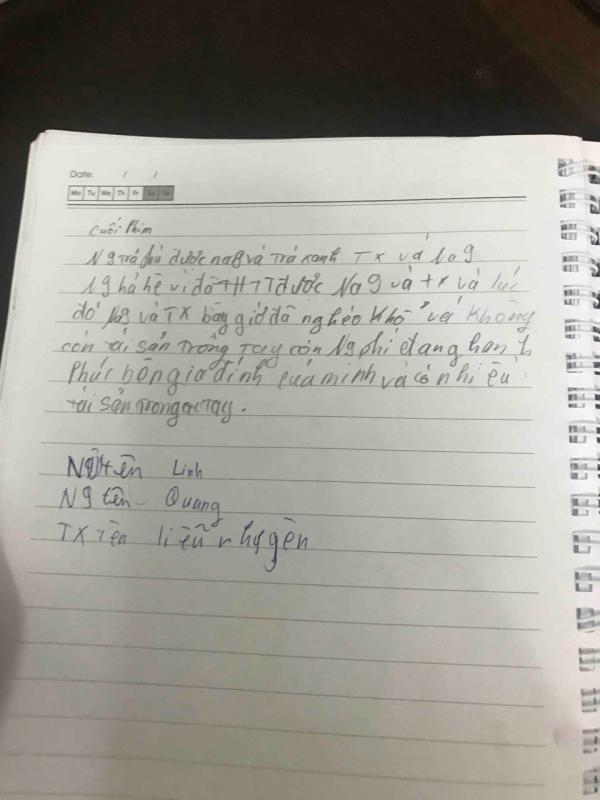 Date: / /
Mo Tu We Th Fr Sa Su
Cuối Phim
Ng trả thù được nag và trà xanh TX và lag
Ng hả hê vì đã THTT được Nag và tx và lúc
đó Nag và TX bây giờ đã nghèo khổ và không
còn tài sản trong tay còn Ng thì đang hạnh
Phúc bên gia đình của mình và có nhiều
tài sản trong tay.
tên Linh
Ng tên Quang
TX tên liễu như